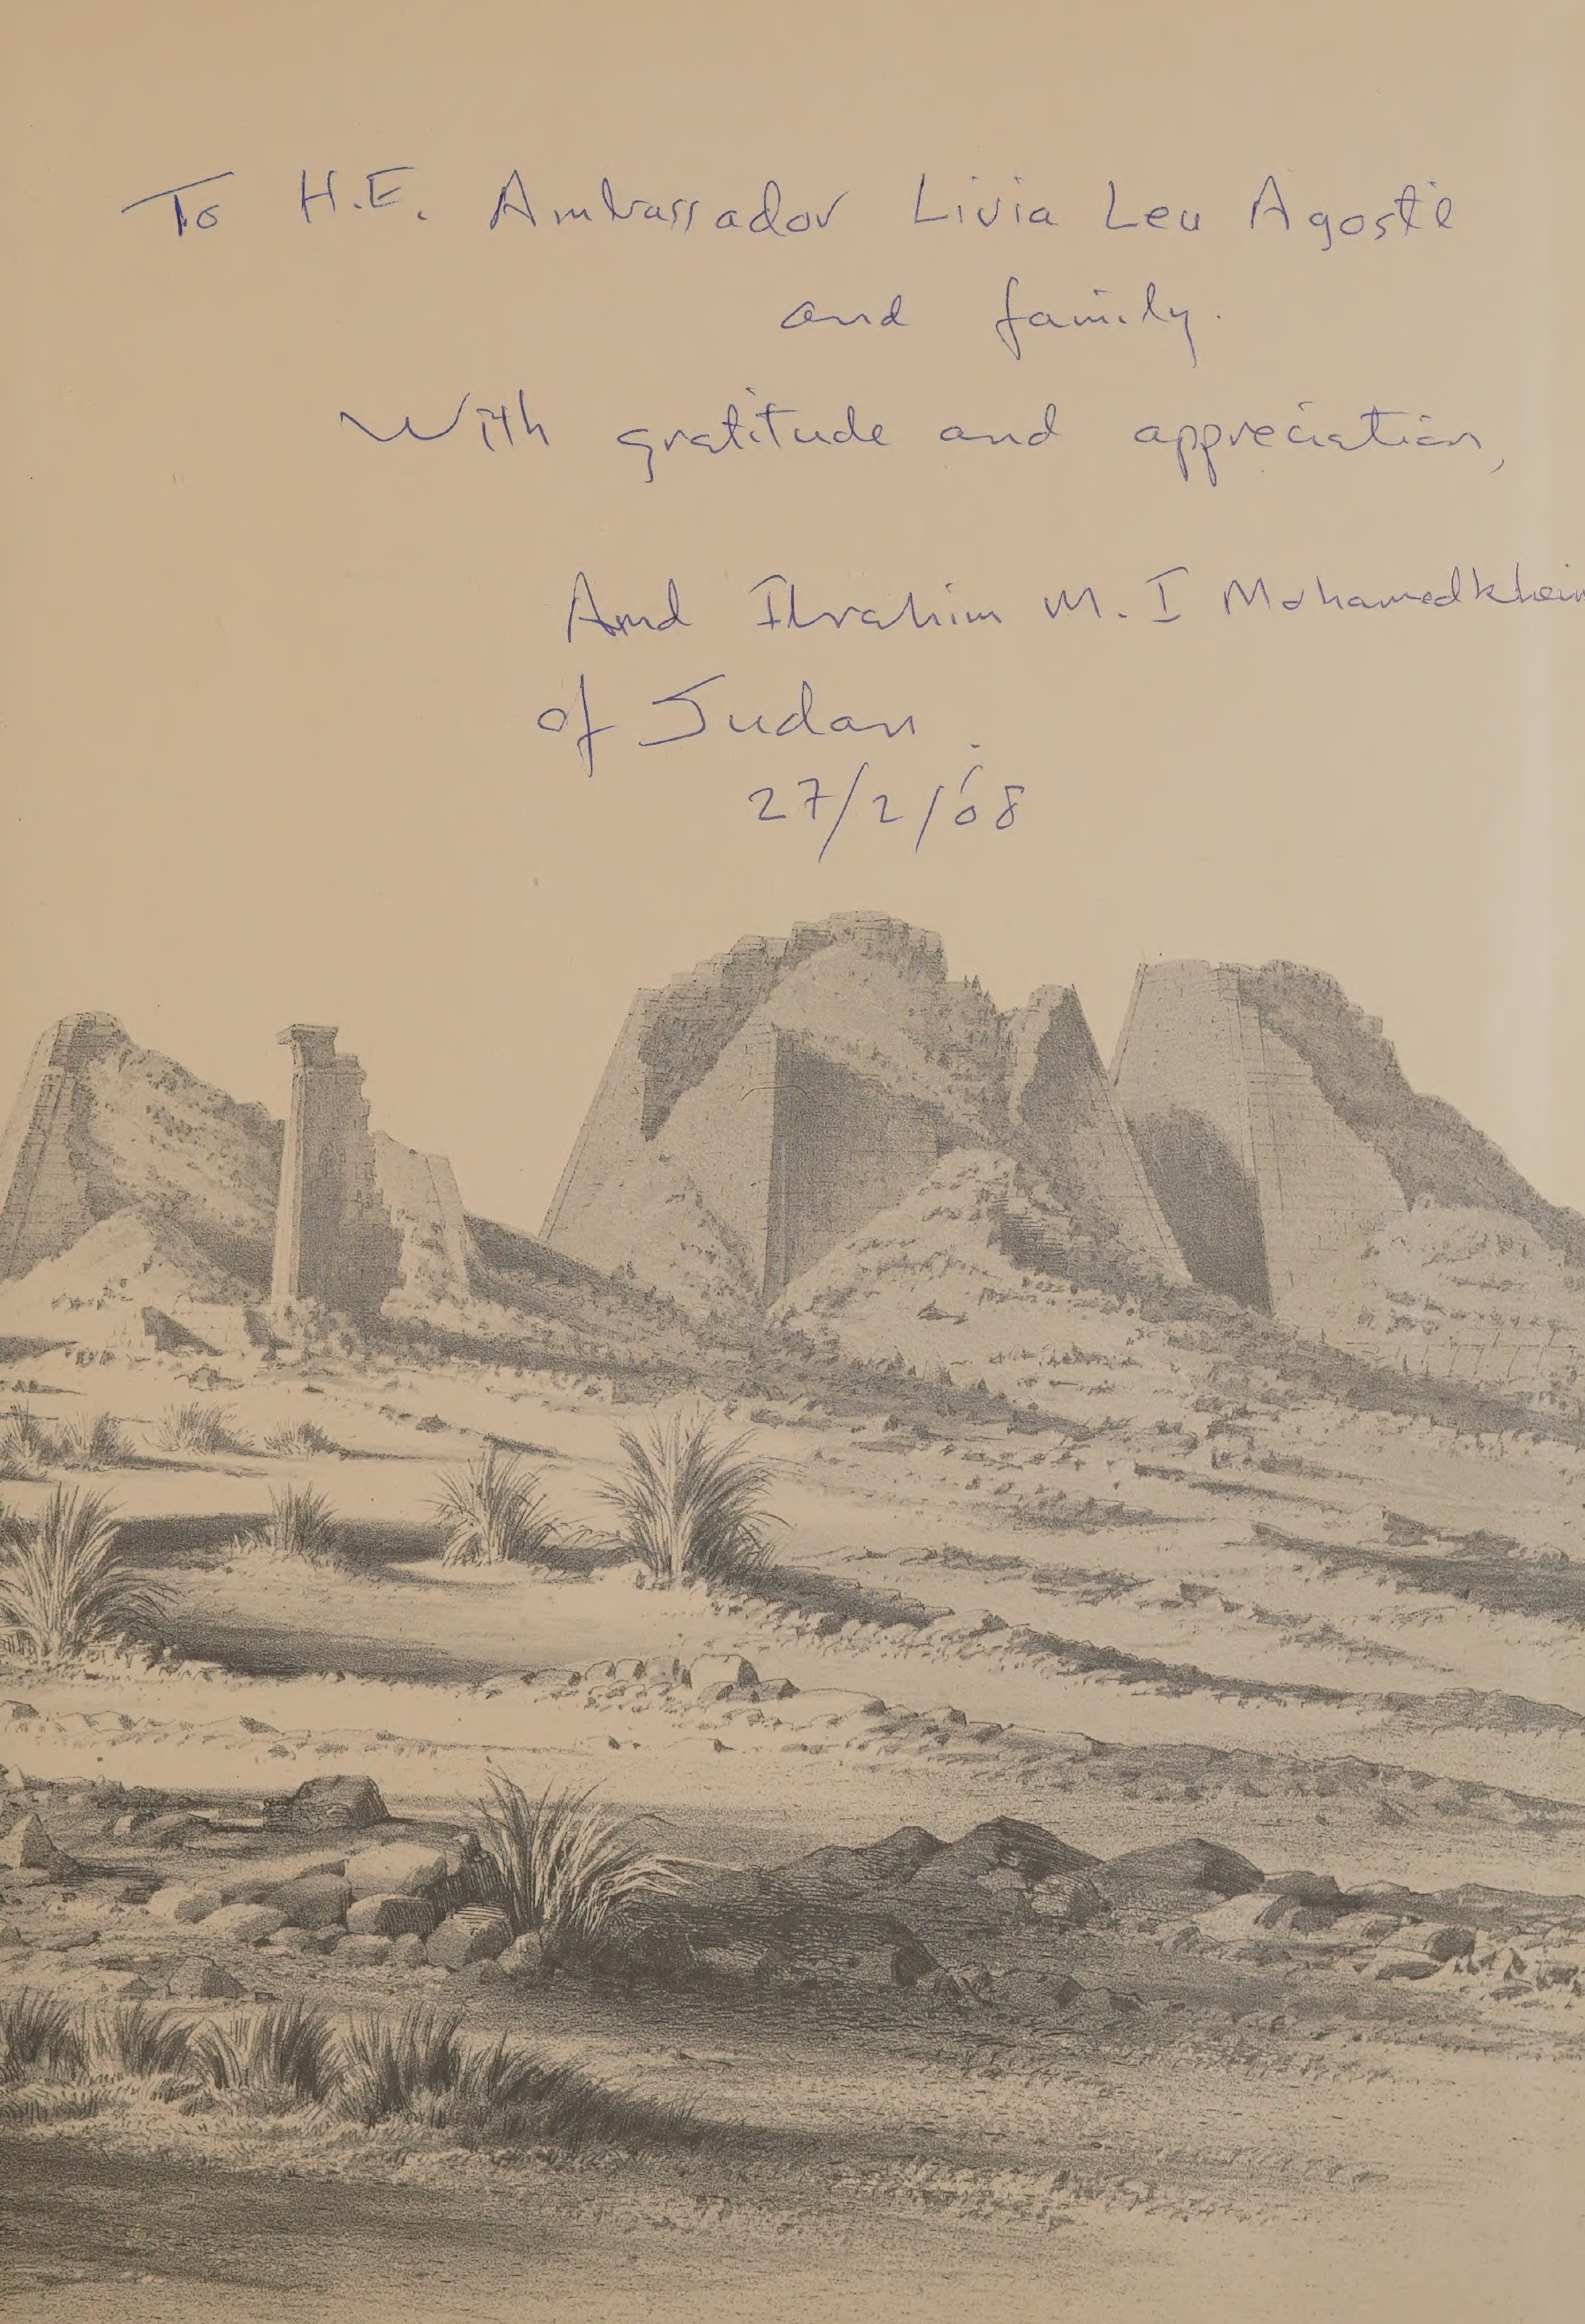 To H.E. Ambassador Livia Leu Agosti
and family.
With gratitude and appreciation,
Amd Ibrahim M. I Mohamedkheir
of Sudan.
27/2/'08